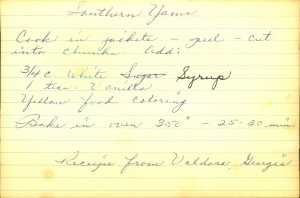 Southern Yams
Cook in jackets - peel - cut
into chunks. Add:
3/4 c. White Sugar Syrup
1 teas. Vanilla
Yellow food coloring
Bake in oven 350° - 25-30 min
Receipe from Valdosa, Georgia